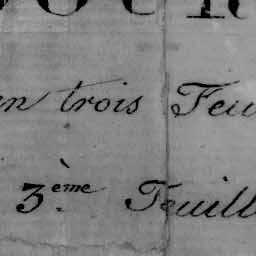 en trois Feu
3ème Feuill